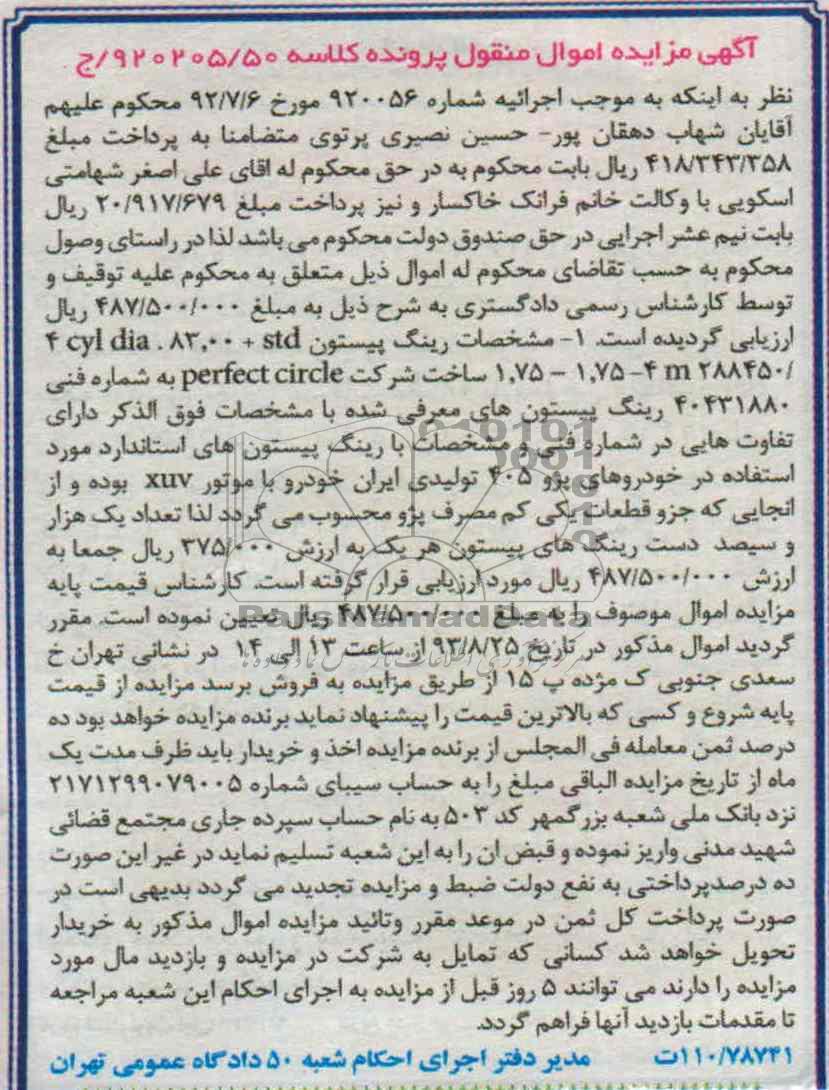 آگهی مزایده اموال منقول پرونده کلاسه ۹۲۰۲۰۵/۵۰/ج
نظر به اینکه به موجب اجرائیه شماره ۹۲۰۰۵۶ مورخ ۹۲/۷/۶ محکوم علیهم
آقایان شهاب دهقان پور- حسین نصیری پرتوی متضامنا به پرداخت مبلغ
۴۱۸/۳۴۳/۳۵۸ ریال بابت محکوم به در حق محکوم له اقای علی اصغر شهامتی
اسکویی با وکالت خانم فرانک خاکسار و نیز پرداخت مبلغ ۲۰/۹۱۷/۶۷۹ ریال
بابت نیم عشر اجرایی در حق صندوق دولت محکوم می باشد لذا در راستای وصول
محکوم به حسب تقاضای محکوم له اموال ذیل متعلق به محکوم علیه توقیف و
توسط کارشناس رسمی دادگستری به شرح ذیل به مبلغ ۴۸۷/۵۰۰/۰۰۰ ریال
ارزیابی گردیده است. ۱- مشخصات رینگ پیستون ۴ cyl dia . ۸۳,۰۰ + std
/۲۸۸۴۵۰ ۴ m -۱,۷۵ – ۱,۷۵ ساخت شرکت perfect circle به شماره فنی
۴۰۴۳۱۸۸۰ رینگ پیستون های معرفی شده با مشخصات فوق الذکر دارای
تفاوت هایی در شماره فنی و مشخصات با رینگ پیستون های استاندارد مورد
استفاده در خودروهای پژو ۴۰۵ تولیدی ایران خودرو با موتور xuv بوده و از
انجایی که جزو قطعات یکی کم مصرف پژو محسوب می گردد لذا تعداد یک هزار
و سیصد دست رینگ های پیستون هر یک به ارزش ۳۷۵/۰۰۰ ریال جمعا به
ارزش ۴۸۷/۵۰۰/۰۰۰ ریال مورد ارزیابی قرار گرفته است. کارشناس قیمت پایه
مزایده اموال موصوف را به مبلغ ۴۸۷/۵۰۰/۰۰۰ ریال تعیین نموده است. مقرر
گردید اموال مذکور در تاریخ ۹۳/۸/۲۵ از ساعت ۱۳ الی ۱۴ در نشانی تهران خ
سعدی جنوبی ک مژده پ ۱۵ از طریق مزایده به فروش برسد مزایده از قیمت
پایه شروع و کسی که بالاترین قیمت را پیشنهاد نماید برنده مزایده خواهد بود ده
درصد ثمن معامله فی المجلس از برنده مزایده اخذ و خریدار باید ظرف مدت یک
ماه از تاریخ مزایده الباقی مبلغ را به حساب سیبای شماره ۲۱۷۱۲۹۹۰۷۹۰۰۵
نزد بانک ملی شعبه بزرگمهر کد ۵۰۳ به نام حساب سپرده جاری مجتمع قضائی
شهید مدنی واریز نموده و قبض ان را به این شعبه تسلیم نماید در غیر این صورت
ده درصدپرداختی به نفع دولت ضبط و مزایده تجدید می گردد بدیهی است در
صورت پرداخت کل ثمن در موعد مقرر وتائید مزایده اموال مذکور به خریدار
تحویل خواهد شد کسانی که تمایل به شرکت در مزایده و بازدید مال مورد
مزایده را دارند می توانند ۵ روز قبل از مزایده به اجرای احکام این شعبه مراجعه
تا مقدمات بازدید آنها فراهم گردد.
۱۱۰/۷۸۷۴۱ت مدیر دفتر اجرای احکام شعبه ۵۰ دادگاه عمومی تهران